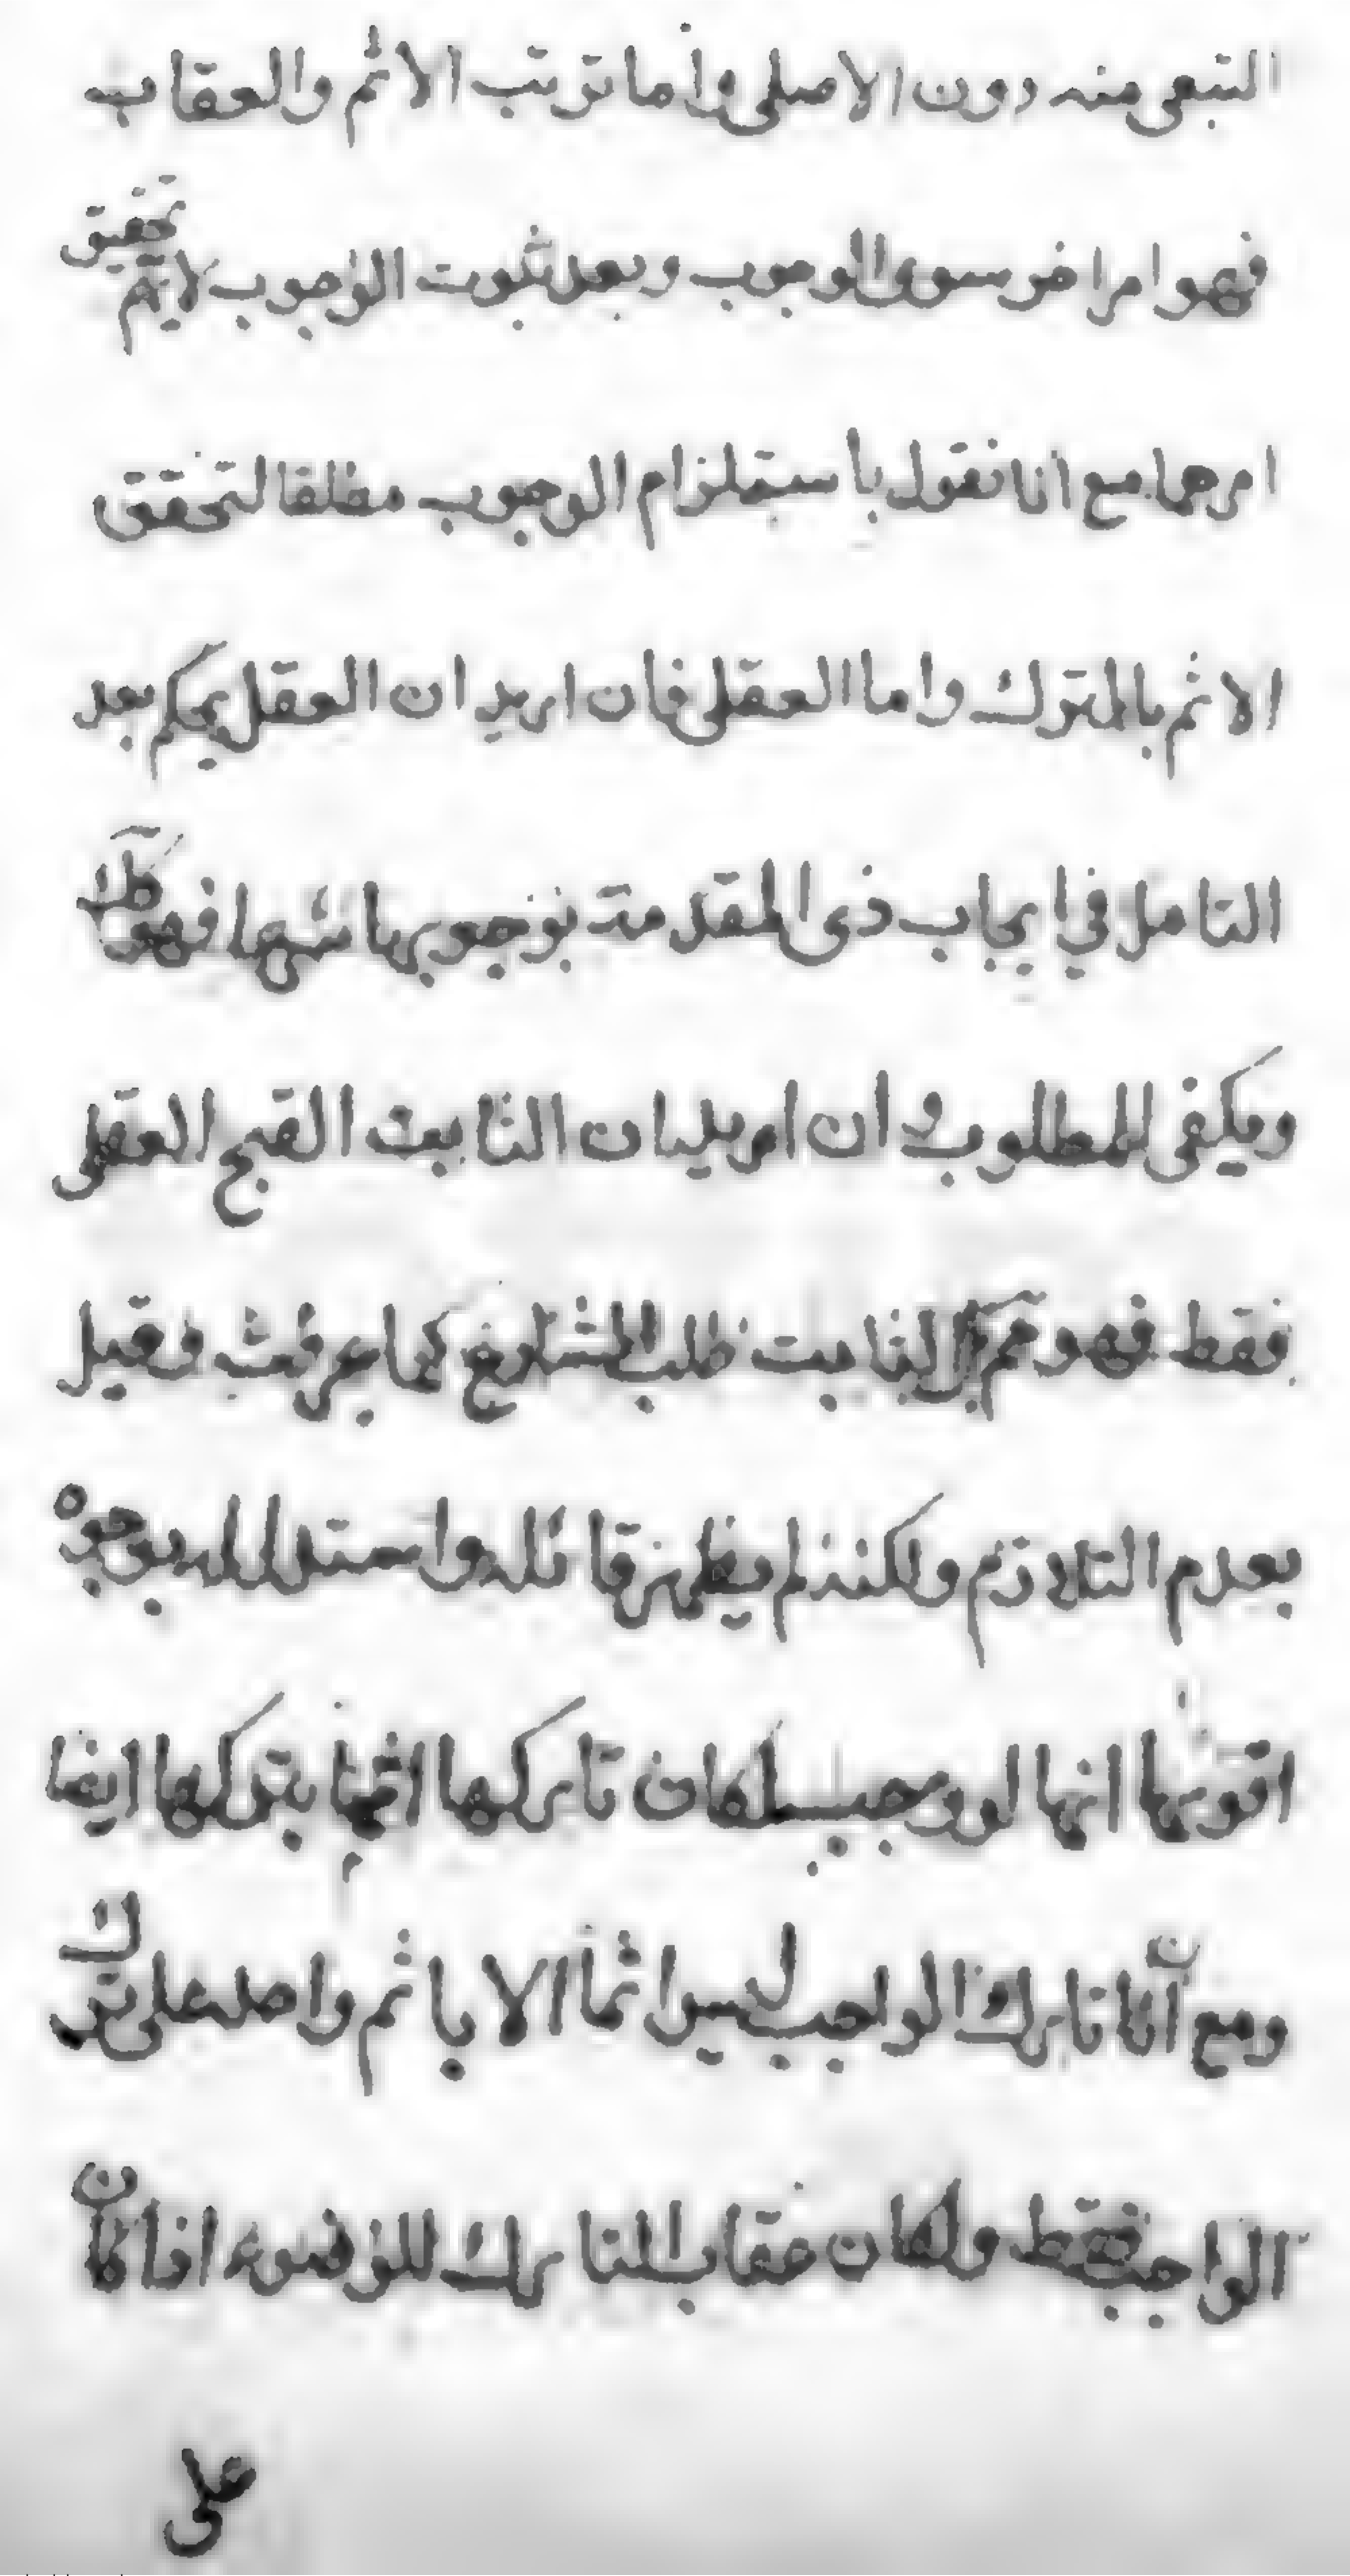 التبعى منه دون الاصلى واما ترتب الاثم والعقاب
فهو امر اخر سوى الوجوب وبعد ثبوت الوجوب لا يتم تحقيق
امرهما مع انا نقول باستلزام الوجوب مطلقا لتحقق
الاثم بالمتروك واما العقلى فان اريد ان العقل يحكم بعد
التامل في ايجاب ذى المقدمة بوجوبها شرعا فهو كك
ويكفى للمطلوب وان اريد ان الثابت القبح العقلى
فقط فهو ثم بل الثابت طلب الشارع كما عرفت وقيل
بعدم التلازم ولكنه لم يظهر قائله واستدل له بوجوه
اقويها انها لو وجبت لكان تاركها اثما بتركها ايضا
ومع ان تارك الواجب ليس اثما الا باثم واحد على ترك
الواجب فقط ولكان عقاب التارك للوضوء اذا كان
على